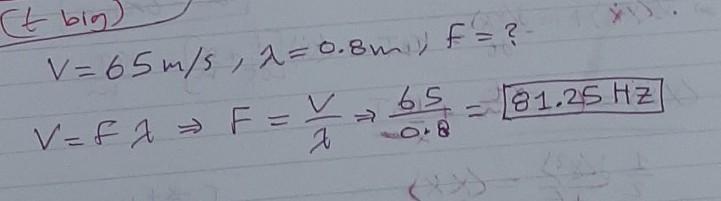 (t big)
V=65m/s, λ=0.8m, F=?
V=Fλ ⇒ F=V/λ ⇒ 65/0.8 = 81.25 HZ